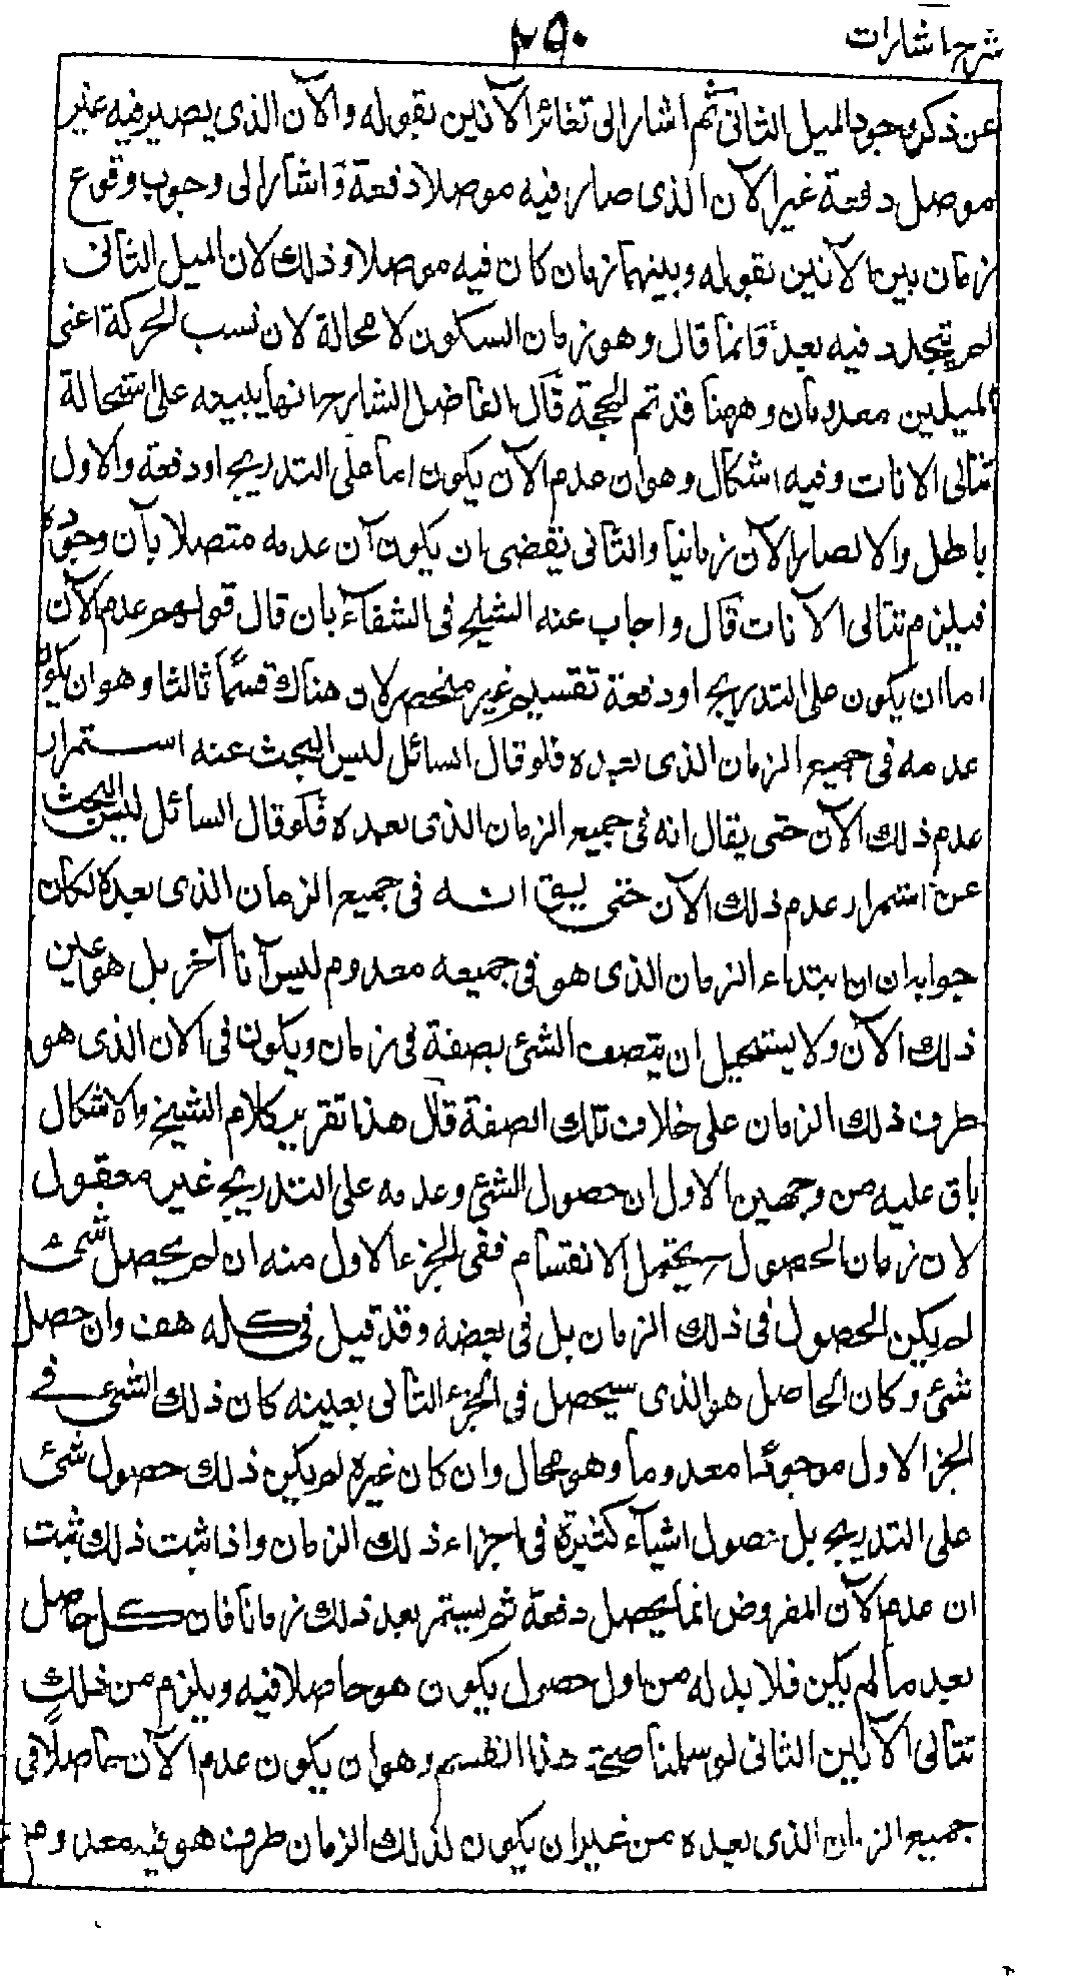 شرح اشارات
٢٥٠
عن ذكر وجود الميل الثانى ثم اشار الى تغائر الآنين بقوله والآن الذى يصير فيه غير
موصل دفعة غير الآن الذى صار فيه موصلا دفعة واشار الى وجوب وقوع
زمان بين الآنين بقوله وبينهما زمان كان فيه موصلا وذلك لان الميل الثانى
لم يتجدد فيه بعد وانما قال وهو زمان السكون لا محالة لان نسب الحركة اعنى
الميلين معدومان وههنا قد تم الحجة قال الفاضل الشارح انها يبينه على استحالة
تتالى الانات وفيه اشكال وهو ان عدم الآن يكون اما على التدريج او دفعة والاول
باطل والا لصار الآن زمانيا والثانى يقضى ان يكون آن عدمه متصلا بآن وجوده
فيلزم تتالى الآنات قال واجاب عنه الشيخ فى الشفآء بان قال قولهم عدم الآن
اما ان يكون على التدريج او دفعة تقسيم غير منحصر لان هناك قسمًا ثالثا وهو ان يكون
عدمه فى جميع الزمان الذى بعده فلو قال السائل ليس البحث عنه استمرار
عدم ذلك الآن حتى يقال انه فى جميع الزمان الذى بعده فلو قال السائل ليس البحث
عن استمرار عدم ذلك الآن حتى يق انه فى جميع الزمان الذى بعده لكان
جوابه ان ابتداء الزمان الذى هو فى جميعه معدوم ليس آنا آخر بل هو عين
ذلك الآن ولا يستحيل ان يتصف الشئ بصفة فى زمان ويكون فى الان الذى هو
طرف ذلك الزمان على خلاف تلك الصفة قال هذا تقرير كلام الشيخ والاشكال
باق عليه من وجهين الاول ان حصول الشئ وعدمه على التدريج غير معقول
لان زمان الحصول يحتمل الانقسام ففى الجزء الاول منه ان لم يحصل شئ
لم يكن الحصول فى ذلك الزمان بل فى بعضه وقد قيل فى كله هف وان حصل
شئ وكان الحاصل هو الذى سيحصل فى الجزء التالى بعينه كان ذلك الشئ فى
الجزء الاول موجودًا معدوما وهو محال وان كان غيره لم يكن ذلك حصول شئ
على التدريج بل حصول اشيآء كثيرة فى اجزاء ذلك الزمان واذا ثبت ذلك ثبت
ان عدم الآن المفروض انما يحصل دفعة ثم يستمر بعد ذلك زمانا فان كل حاصل
بعد ما لم يكن فلا بد له من اول حصول يكون هو حاصلا فيه ويلزم من ذلك
تتالى الآنين الثانى لو سلمنا صحة هذا القسم وهو ان يكون عدم الآن حاصلا فى
جميع الزمان الذى بعده من غير ان يكون لذلك الزمان طرف هو فيه معدوم